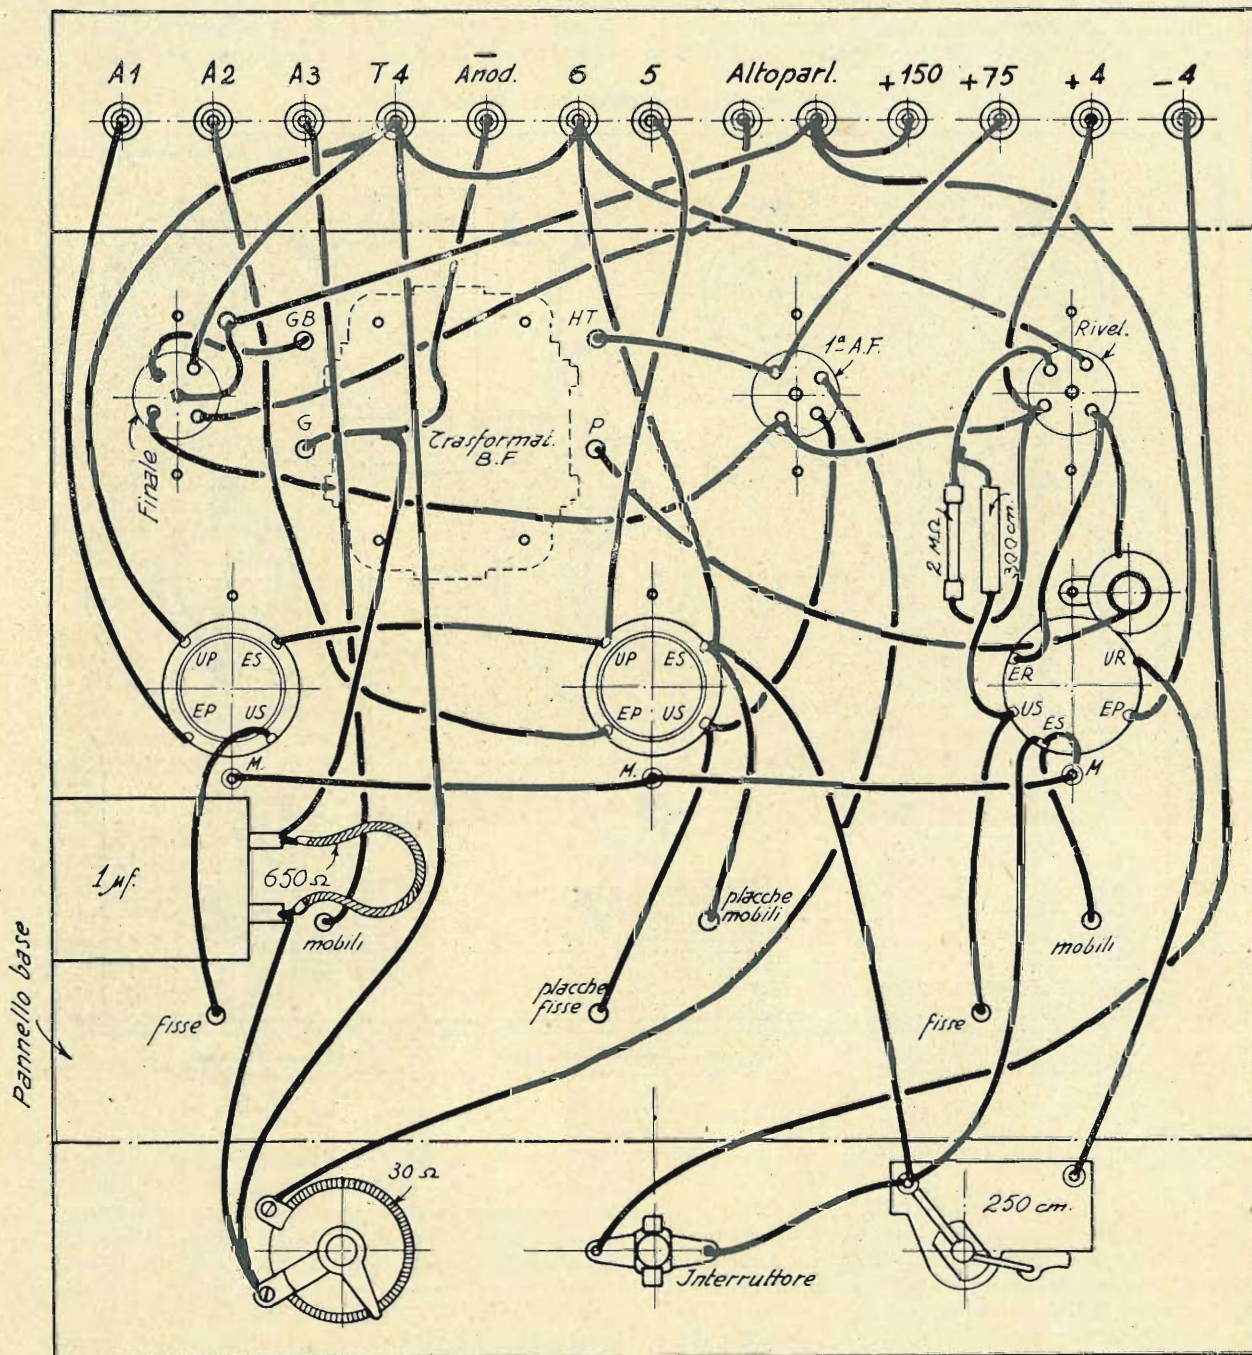 A1 A2 A3 T4 Anod. 6 5 Altoparl. +150 +75 +4 -4
GB
HT
1ª A.F.
Rivel.
Finale
G
Trasformat.
B.F
P
2 MΩ
300 cm.
UP ES
EP US
M.
UP ES.
EP US
M.
ER UR
US ES EP
M
1 μf.
650 Ω
mobili
placche
mobili
mobili
fisse
placche
fisse
fisse
Pannello base
30 Ω
Interruttore
250 cm.